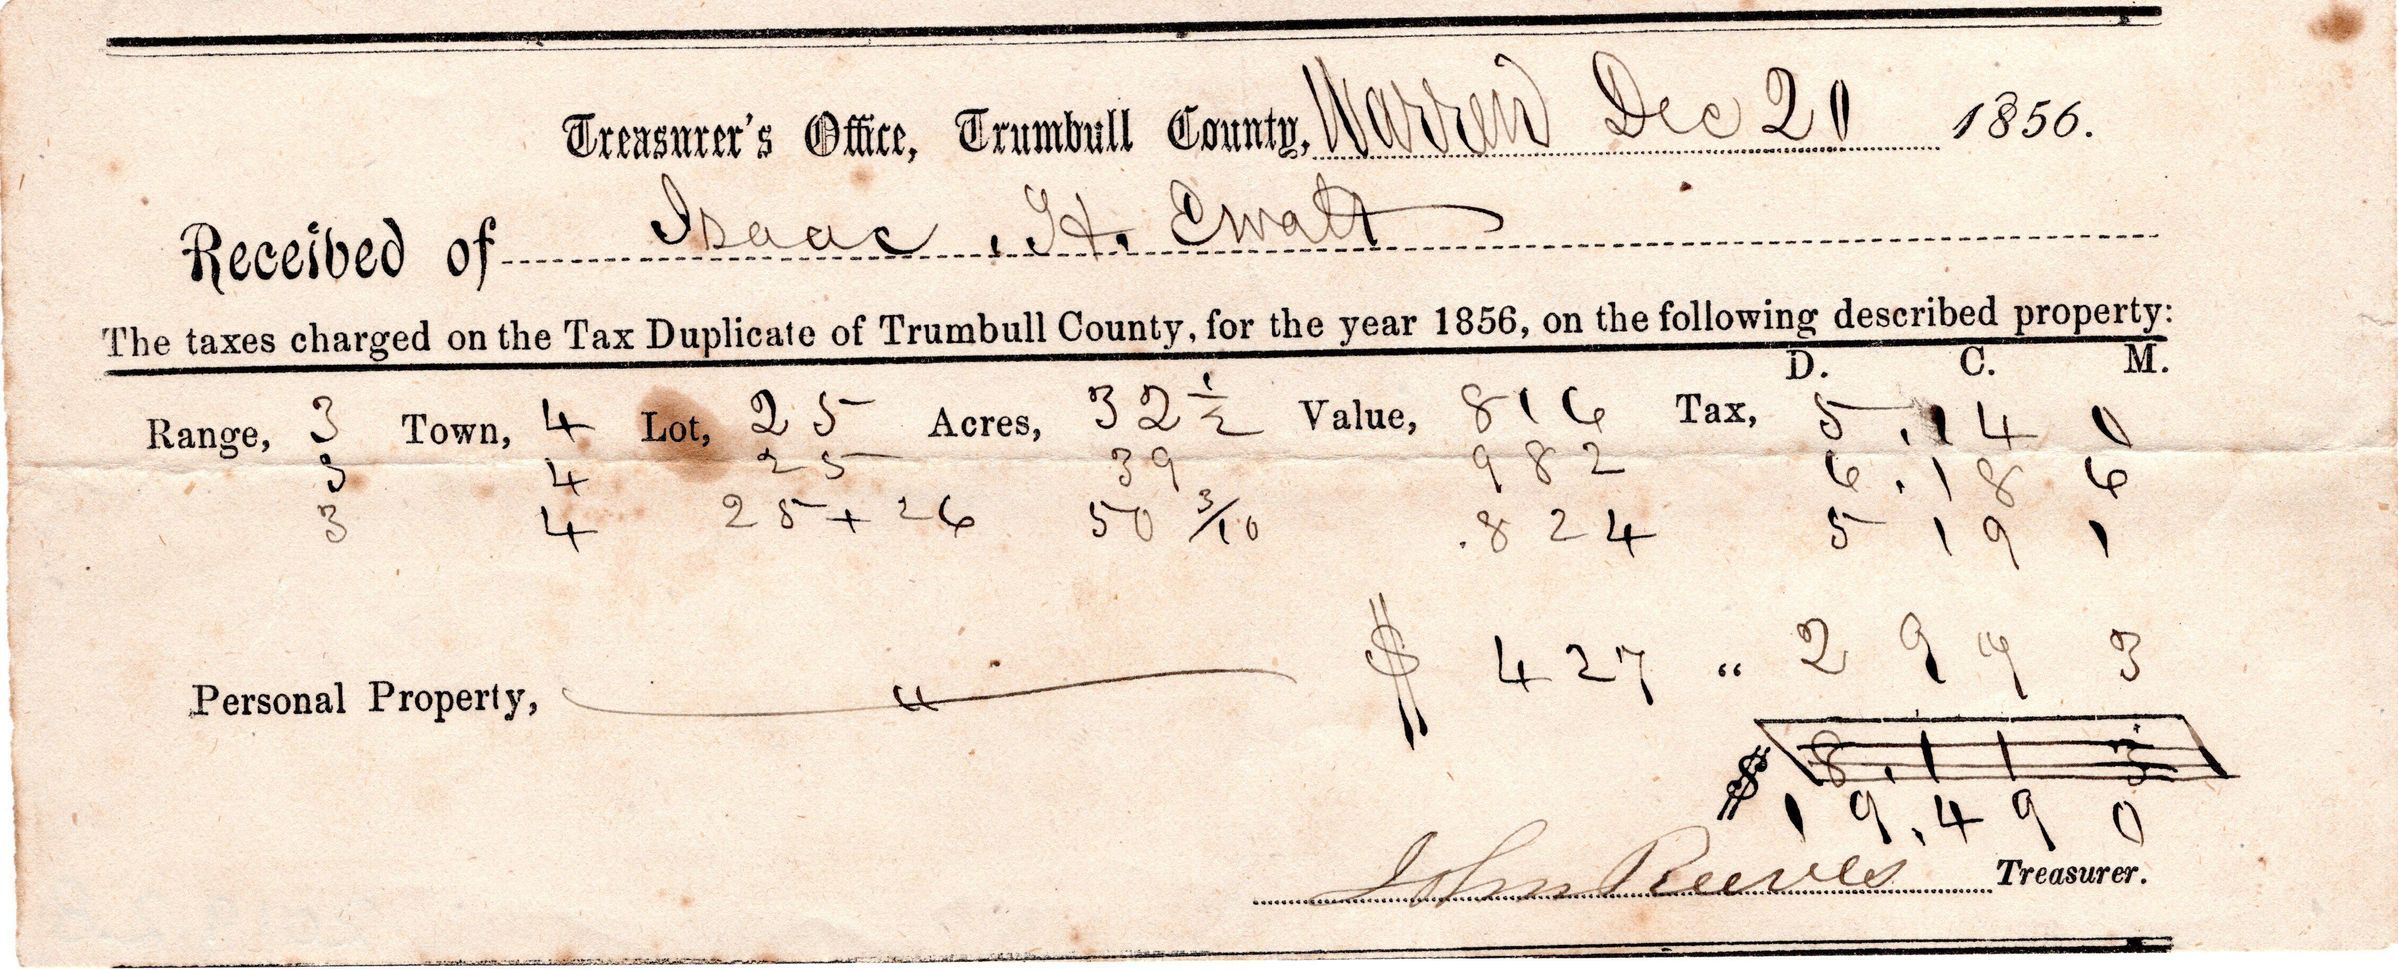 Treasurer's Office, Trumbull County, Warren Dec 20 1856.
Received of Isaac H. Ewalt
The taxes charged on the Tax Duplicate of Trumbull County, for the year 1856, on the following described property:
D. C. M.
Range, 3 Town, 4 Lot, 25 Acres, 32 1/2 Value, 816 Tax, 5.14 0
3 4 25 39 982 6.18 6
3 4 25 + 26 50 3/10 .824 5 19 1
Personal Property, " $ 427 " 2 97 3
8.11 3
$ 19.49 0
John Reeves Treasurer.